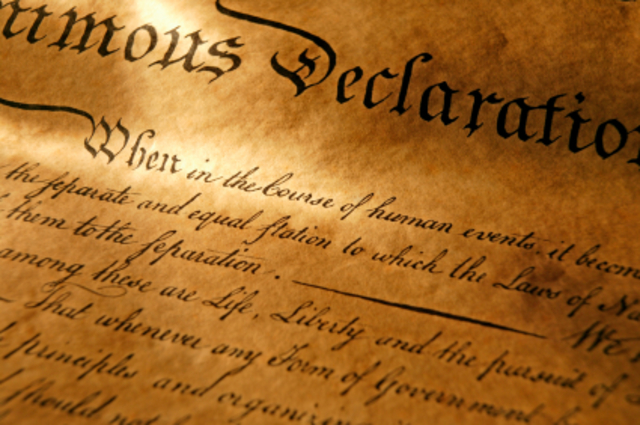 nimous Declaratio
When in the Course of human events, it becom
the separate and equal station to which the Laws of Na
them to the separation. We
among these are Life, Liberty and the pursuit of
That whenever any Form of Government
principles and organizin
should not